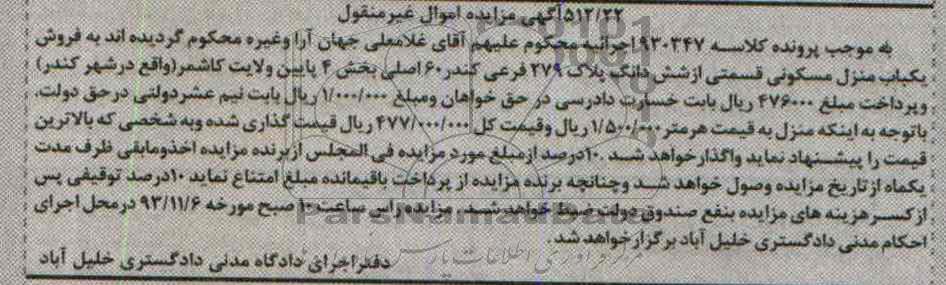 ۵۱۲/۲۲آگهی مزایده اموال غیرمنقول
به موجب پرونده کلاسه ۹۳۰۳۴۷ اجرائیه محکوم علیهم آقای غلامعلی جهان آرا وغیره محکوم گردیده اند به فروش
یکباب منزل مسکونی قسمتی ازشش دانگ پلاک ۲۷۹ فرعی کندر۶۰ اصلی بخش ۴ پایین ولایت کاشمر(واقع درشهر کندر)
وپرداخت مبلغ ۴۷۶۰۰۰ ریال بابت خسارت دادرسی در حق خواهان ومبلغ ۱/۰۰۰/۰۰۰ ریال بابت نیم عشردولتی درحق دولت.
باتوجه به اینکه منزل به قیمت هرمتر ۱/۵۰۰/۰۰۰ ریال وقیمت کل ۴۷۷/۰۰۰/۰۰۰ ریال قیمت گذاری شده وبه شخصی که بالاترین
قیمت را پیشنهاد نماید واگذارخواهد شد .۱۰درصد ازمبلغ مورد مزایده فی المجلس ازبرنده مزایده اخذومابقی ظرف مدت
یکماه ازتاریخ مزایده وصول خواهد شد وچنانچه برنده مزایده از پرداخت باقیمانده مبلغ امتناع نماید ۱۰درصد توقیفی پس
ازکسر هزینه های مزایده بنفع صندوق دولت ضبط خواهدشد. مزایده راس ساعت ۱۰ صبح مورخه ۹۳/۱۱/۶ درمحل اجرای
احکام مدنی دادگستری خلیل آباد برگزارخواهد شد.
دفتراجرای دادگاه مدنی دادگستری خلیل آباد
ParsNamadData